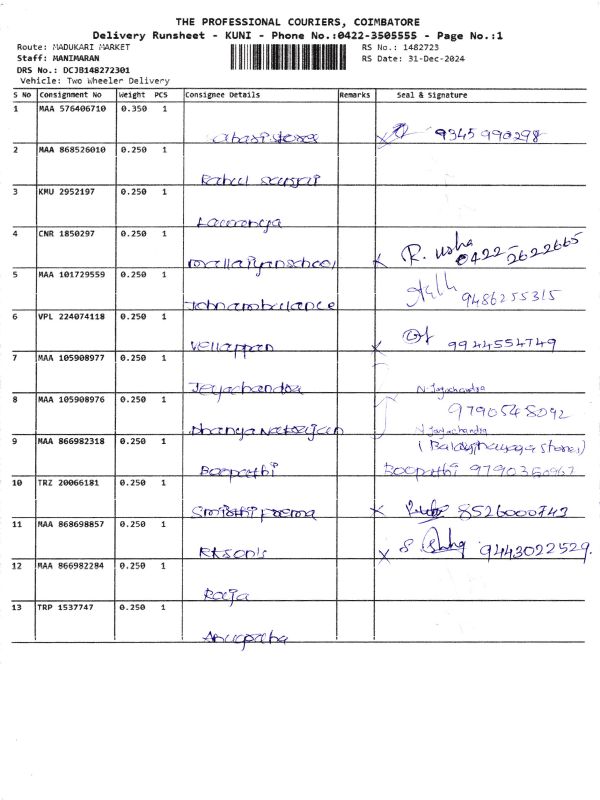 THE PROFESSIONAL COURIERS, COIMBATORE
Delivery Runsheet - KUNI - Phone No.:0422-3505555 - Page No.:1
Route: MADUKARI MARKET RS No.: 1482723
Staff: MANIMARAN RS Date: 31-Dec-2024
DRS No.: DCJB148272301
Vehicle: Two Wheeler Delivery
S No Consignment No Weight PCS Consignee Details Remarks Seal & Signature
1 MAA 576406710 0.350 1
9345990298
2 MAA 868526010 0.250 1
Rahul
3 KMU 2952197 0.250 1
Lavanya
4 CNR 1850297 0.250 1
R. usha
0422-2622665
5 MAA 101729559 0.250 1
Johnambulance 9486255315
6 VPL 224074118 0.250 1
Vellappan 9944554749
7 MAA 105908977 0.250 1
Jeyachandra N. Jayachandra
8 MAA 105908976 0.250 1
9790548092
Dhanya Natarajan N. Jayachandra
9 MAA 866982318 0.250 1
Boopathi Boopathi 9790350967
10 TRZ 20066181 0.250 1
8526000743
11 MAA 868698857 0.250 1
9443022529.
12 MAA 866982284 0.250 1
Raja
13 TRP 1537747 0.250 1